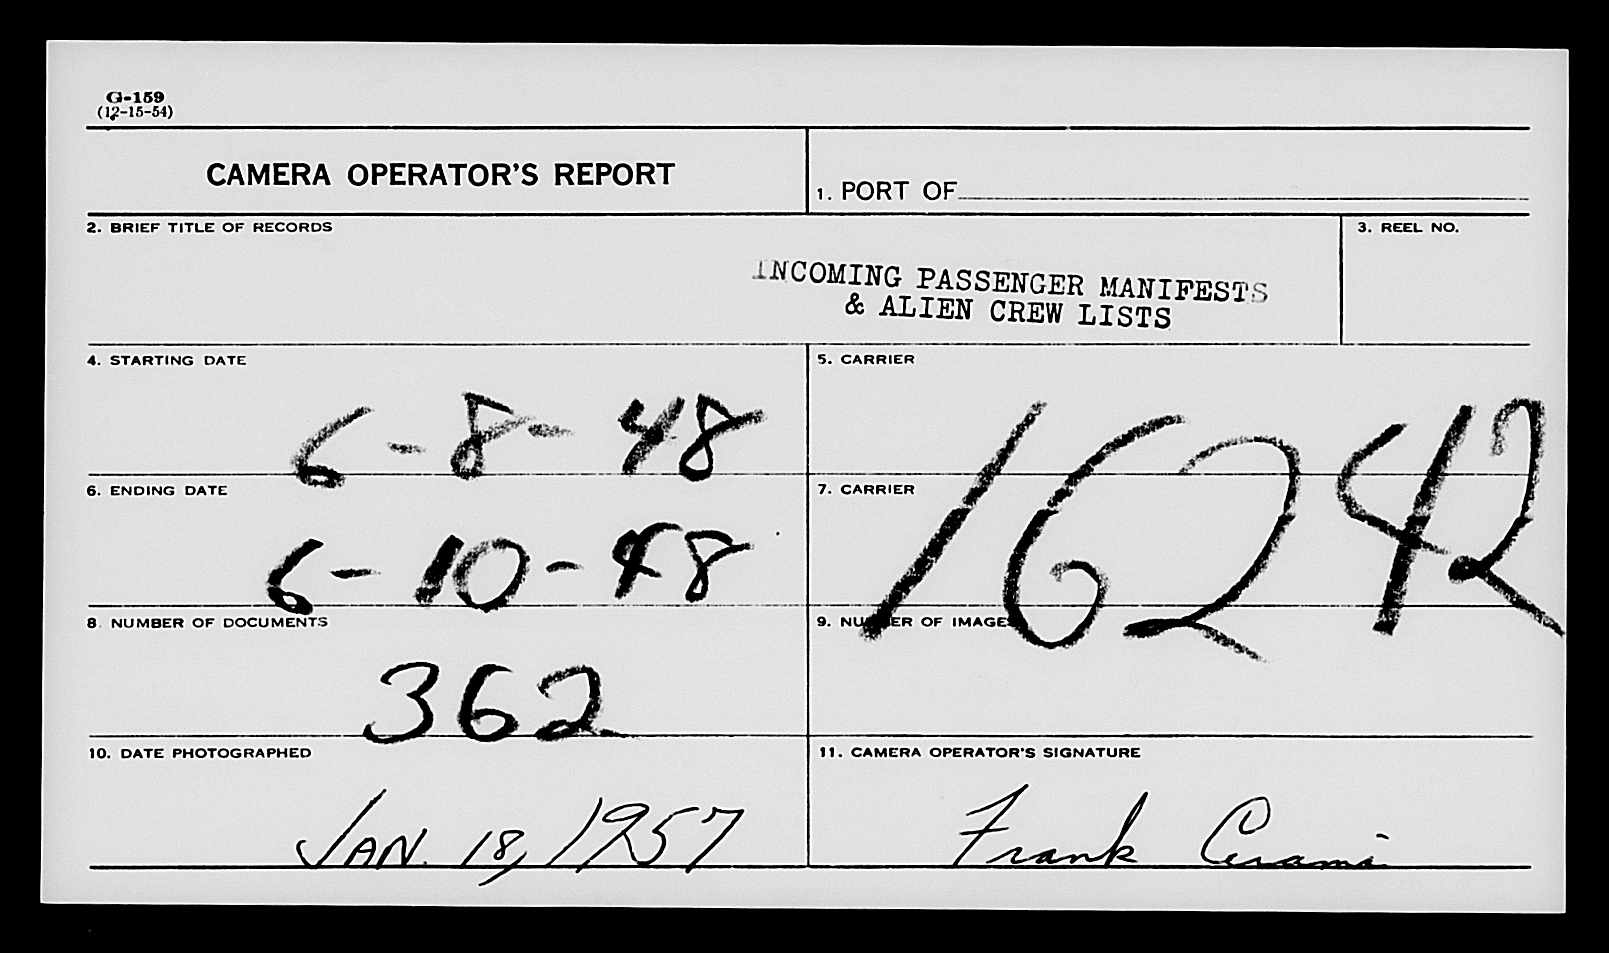 G-159
(12-15-54)
CAMERA OPERATOR'S REPORT
1. PORT OF
2. BRIEF TITLE OF RECORDS
3. REEL NO.
INCOMING PASSENGER MANIFESTS
& ALIEN CREW LISTS
4. STARTING DATE
6-8-48
5. CARRIER
16242
6. ENDING DATE
6-10-48
7. CARRIER
8. NUMBER OF DOCUMENTS
362
9. NUMBER OF IMAGES
10. DATE PHOTOGRAPHED
JAN. 18, 1957
11. CAMERA OPERATOR'S SIGNATURE
Frank Cerami